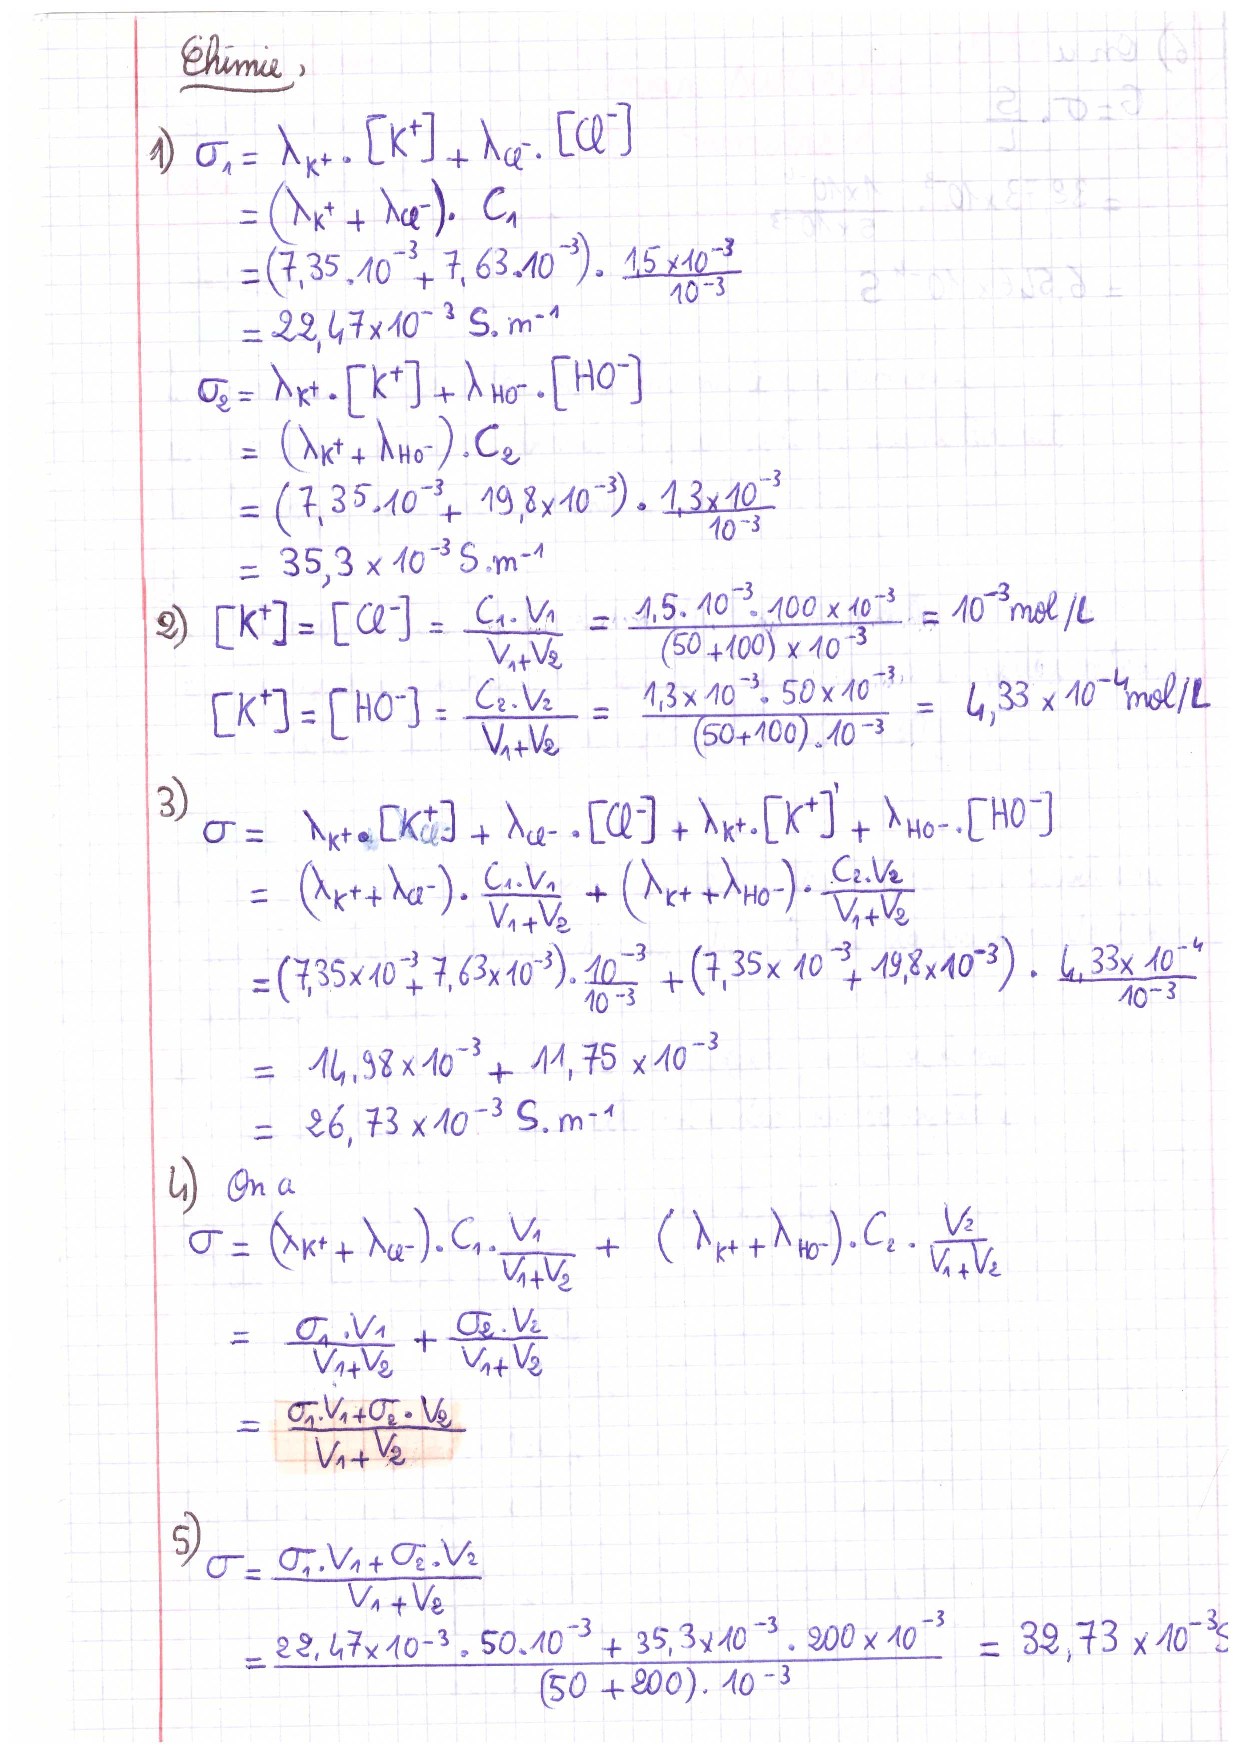 Chimie,
1) σ₁ = λK⁺ . [K⁺] + λCl⁻ . [Cl⁻]
= (λK⁺ + λCl⁻) . C₁
= (7,35.10⁻³ + 7,63.10⁻³) . 1,5×10⁻³ / 10⁻³
= 22,47×10⁻³ S.m⁻¹
σ₂ = λK⁺ . [K⁺] + λHO⁻ . [HO⁻]
= (λK⁺ + λHO⁻) . C₂
= (7,35.10⁻³ + 19,8×10⁻³) . 1,3×10⁻³ / 10⁻³
= 35,3 × 10⁻³ S.m⁻¹
2) [K⁺] = [Cl⁻] = C₁.V₁ / V₁+V₂ = 1,5.10⁻³.100×10⁻³ / (50+100)×10⁻³ = 10⁻³ mol/L
[K⁺] = [HO⁻] = C₂.V₂ / V₁+V₂ = 1,3×10⁻³.50×10⁻³ / (50+100).10⁻³ = 4,33 × 10⁻⁴ mol/L
3) σ = λK⁺ . [K⁺] + λCl⁻ . [Cl⁻] + λK⁺ . [K⁺]' + λHO⁻ . [HO⁻]
= (λK⁺ + λCl⁻) . C₁.V₁ / V₁+V₂ + (λK⁺ + λHO⁻) . C₂.V₂ / V₁+V₂
= (7,35×10⁻³ + 7,63×10⁻³) . 10⁻³ / 10⁻³ + (7,35×10⁻³ + 19,8×10⁻³) . 4,33×10⁻⁴ / 10⁻³
= 14,98×10⁻³ + 11,75×10⁻³
= 26,73×10⁻³ S.m⁻¹
4) On a
σ = (λK⁺ + λCl⁻) . C₁ . V₁ / V₁+V₂ + (λK⁺ + λHO⁻) . C₂ . V₂ / V₁+V₂
= σ₁.V₁ / V₁+V₂ + σ₂.V₂ / V₁+V₂
= σ₁.V₁+σ₂.V₂ / V₁+V₂
5) σ = σ₁.V₁+σ₂.V₂ / V₁+V₂
= 22,47×10⁻³.50.10⁻³ + 35,3×10⁻³.200×10⁻³ / (50+200).10⁻³ = 32,73×10⁻³ S